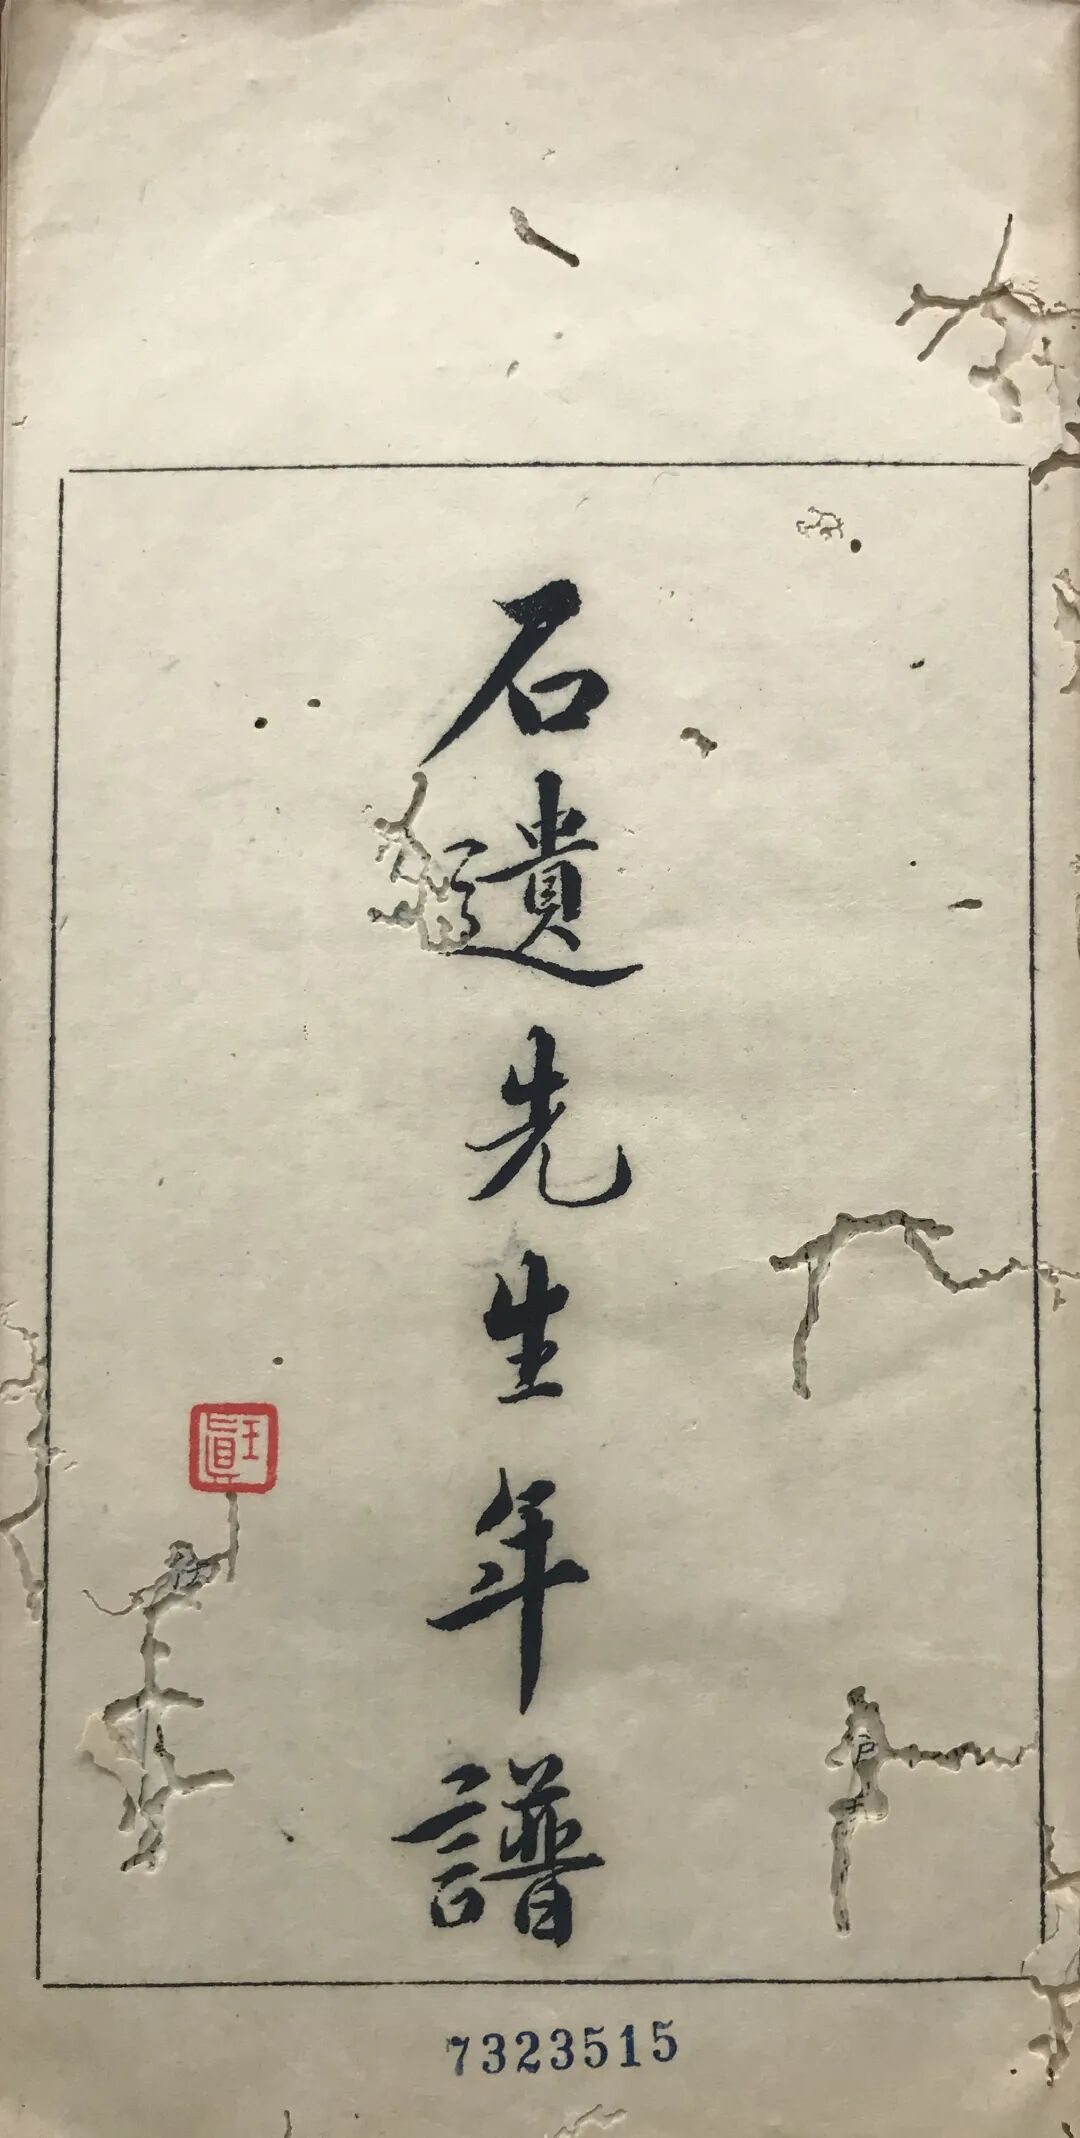 石遺先生年譜
王真
7323515